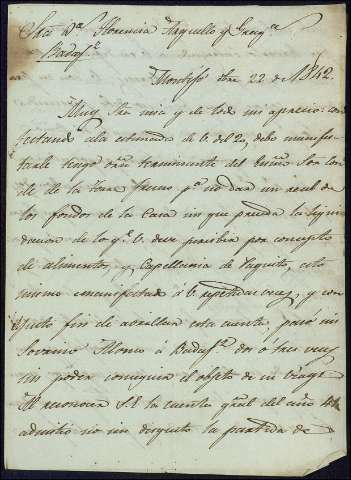 Sra Dª Florencia Arguello y Grag.ª
Badaj.z
Montijo 22 de 1842.
Muy Sra mia y de tod mi aprecio: con
testand á la estimada de V. del 20, debo manifes
tarle tengo orn terminante del Exmo Sor Con
de de la para no dar un real de
los fondos de la Casa sin que preceda la liqui
dacion de lo q.e V. deve percibir por concepto
de alimentos, y Capellania de Paquito, esto
mismo é manifestad á V. repetidas veces, y con
objeto fin de arreglar esta cuenta, pasó mi
Sovrino Alonso á Badaj.z dos ó tres veces
sin poder conseguir el objeto de su viage
Al reconocer S.E la cuenta gral del año
admitio no sin disgusto la partida de